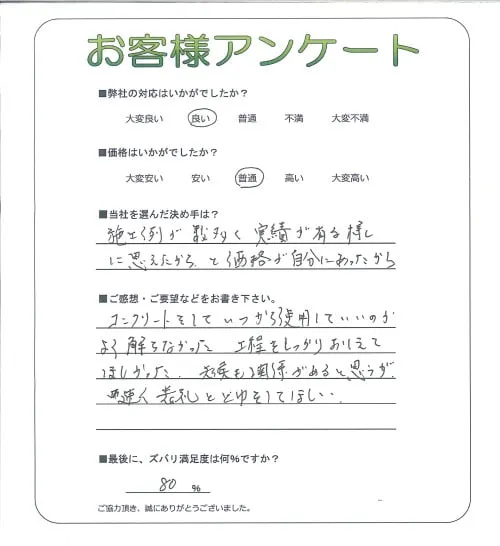 お客様アンケート
■弊社の対応はいかがでしたか？
大変良い 良い 普通 不満 大変不満
■価格はいかがでしたか？
大変安い 安い 普通 高い 大変高い
■当社を選んだ決め手は？
施工例が数多く実績が有る様し
に思えたから、と価格が自分にあったから
■ご感想・ご要望などをお書き下さい。
コンクリートをしていつから使用していいのか
よく解らなかった 工程をしっかりおしえて
ほしかった、天候も関係があると思うが、
表札と をしてほしい．
■最後に、ズバリ満足度は何%ですか？
80 %
ご協力頂き、誠にありがとうございました。